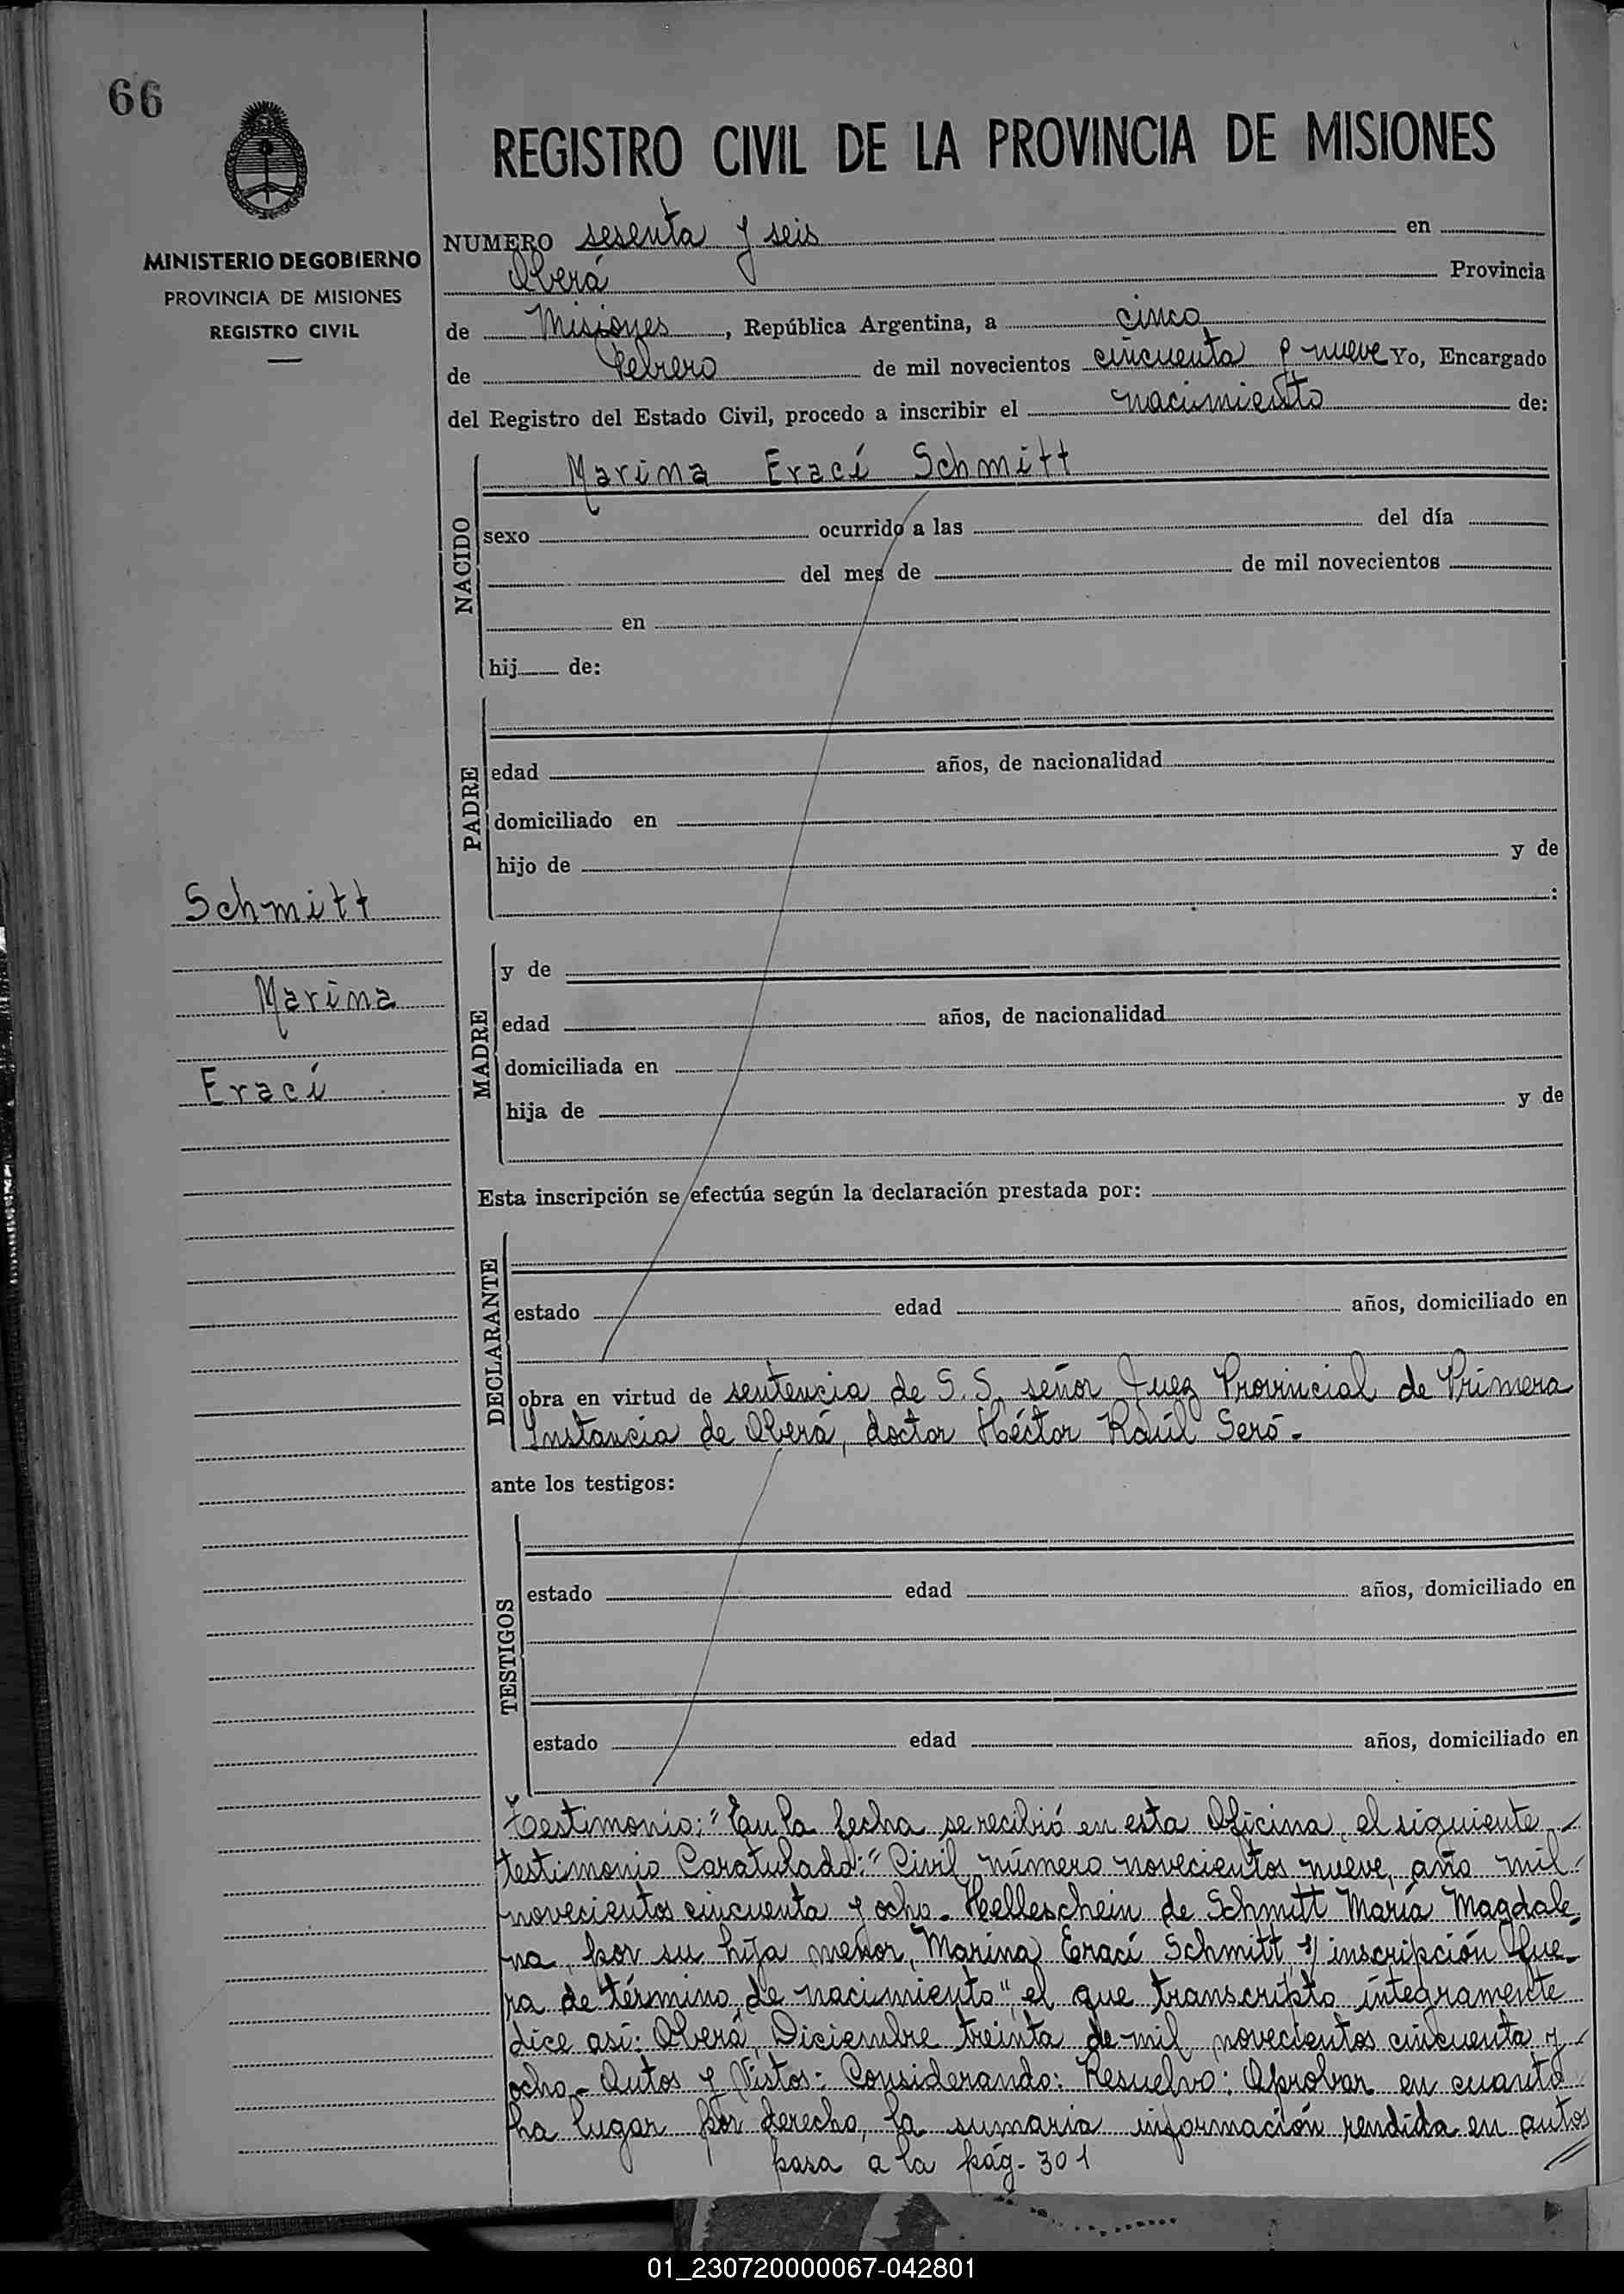 66
REGISTRO CIVIL DE LA PROVINCIA DE MISIONES
MINISTERIO DE GOBIERNO
PROVINCIA DE MISIONES
REGISTRO CIVIL
NUMERO sesenta y seis en
Oberá Provincia
de Misiones, República Argentina, a cinco
de febrero de mil novecientos cincuenta y nueve Yo, Encargado
del Registro del Estado Civil, procedo a inscribir el nacimiento de:
NACIDO
Marina Eraci Schmitt
sexo ocurrido a las del día
del mes de de mil novecientos
en
hij de:
PADRE
edad años, de nacionalidad
domiciliado en
hijo de y de
:
Schmitt
Marina
Eraci
MADRE
y de
edad años, de nacionalidad
domiciliada en
hija de y de
Esta inscripción se efectúa según la declaración prestada por:
DECLARANTE
estado edad años, domiciliado en
obra en virtud de sentencia de S. S. señor Juez Provincial de Primera
Instancia de Oberá, doctor Héctor Raúl Seró.
ante los testigos:
TESTIGOS
estado edad años, domiciliado en
estado edad años, domiciliado en
Testimonio: "En la fecha se recibió en esta Oficina, el siguiente
testimonio Caratulado: "Civil número novecientos nueve, año mil
novecientos cincuenta y ocho. Helleschein de Schmitt María Magdale-
na, por su hija menor, Marina Eraci Schmitt s/ inscripción fue-
ra de término, de nacimiento", el que transcripto íntegramente
dice así: Oberá, Diciembre treinta de mil novecientos cincuenta y
ocho. Autos y Vistos: Considerando: Resuelvo: Aprobar en cuanto
ha lugar por derecho, la sumaria información rendida en autos
pasa a la pág. 301
01_230720000067-042801